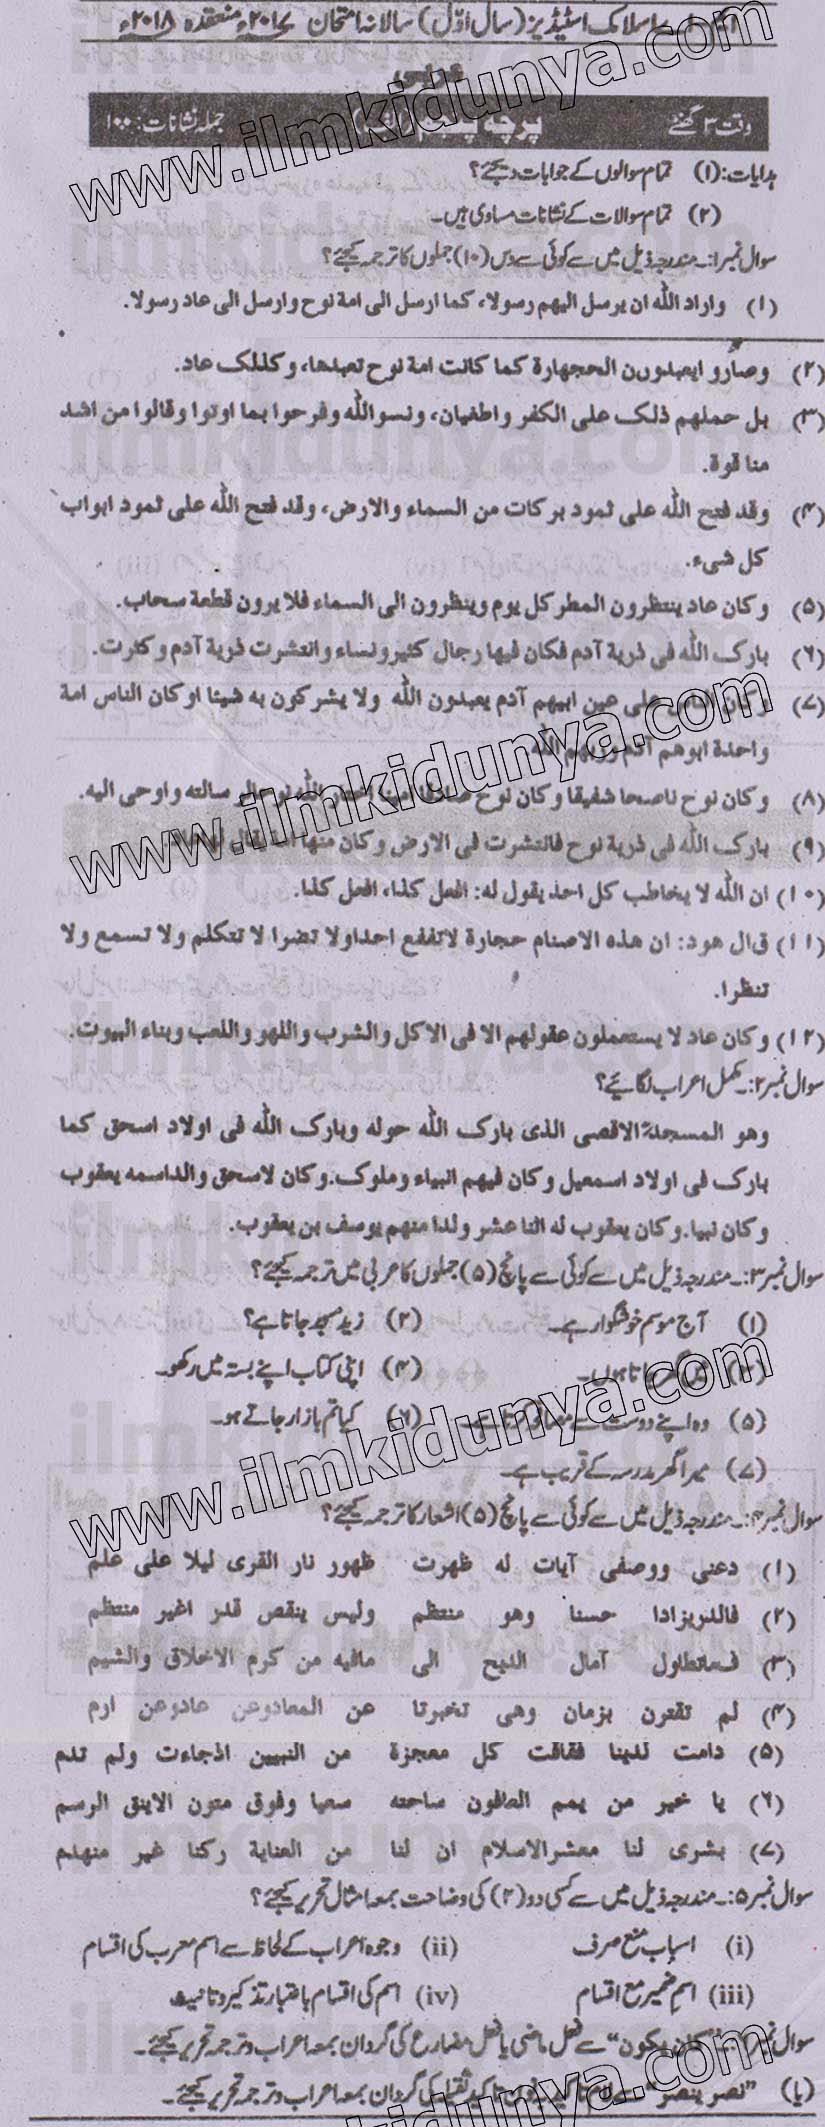 اسلامک اسٹیڈیز (سال اوّل) سالانہ امتحان ۲۰۱۷ء منعقدہ ۲۰۱۸ء
عربی
وقت ۳ گھنٹے پرچہ پنجم (الف) جملہ نشانات: ۱۰۰
ہدایات: (۱) تمام سوالوں کے جوابات دیجئے؟
(۲) تمام سوالات کے نشانات مساوی ہیں۔
سوال نمبر۱:۔ مندرجہ ذیل میں سے کوئی سے دس (۱۰) جملوں کا ترجمہ کیجئے؟
(۱) واراد اللہ ان یرسل الیھم رسولا، کما ارسل الی امة نوح وارسل الی عاد رسولا.
(۲) وصارو ایعبدوون الحجھارة کما کانت امة نوح تعبدھا، وکذلک عاد.
(۳) بل حملھم ذلک علی الکفر واطغیان، ونسو اللہ وفرحوا بما اوتوا وقالوا من اشد
منا قوة.
(۴) وقد فتح اللہ علی ثمود برکات من السماء والارض، وقد فتح اللہ علی ثمود ابواب
کل شیء.
(۵) وکان عاد ینتظرون المطر کل یوم وینظرون الی السماء فلا یرون قطعة سحاب.
(۶) بارک اللہ فی ذریة آدم فکان فیھا رجال کثیر ونساء وانتشرت ذریة آدم وکثرت.
(۷) وکان الناس علی عین ابیھم آدم یعبدون اللہ ولا یشرکون بہ شیئا اوکان الناس امة
واحدة ابوھم آدم وربھم اللہ
(۸) وکان نوح ناصحا شفیقا وکان نوح اللہ نوحا لرسالتہ واوحی الیہ.
(۹) بارک اللہ فی ذریة نوح فانتشرت فی الارض وکان منھا امة یقال لھا
(۱۰) ان اللہ لا یخاطب کل احد یقول لہ: افعل کذا، افعل کذا.
(۱۱) قال ھود: ان ھذہ الاصنام حجارة لاتنفع احدا ولا تضرا لا تتکلم ولا تسمع ولا
تنظرا.
(۱۲) وکان عاد لا یستعملون عقولھم الا فی الاکل والشرب واللھو واللعب وبناء البیوت.
سوال نمبر۲:۔ مکمل اعراب لگائیے؟
وھو المسجد الاقصی الذی بارک اللہ حولہ وبارک اللہ فی اولاد اسحق کما
بارک فی اولاد اسمعیل وکان فیھم انبیاء وملوک. وکان لاسحق والداسمہ یعقوب
وکان نبیا. وکان یعقوب لہ اثنا عشر ولدا منھم یوسف بن یعقوب.
سوال نمبر۳:۔ مندرجہ ذیل میں سے کوئی سے پانچ (۵) جملوں کا عربی میں ترجمہ کیجئے؟
(۱) آج موسم خوشگوار ہے۔ (۲) زید مسجد جاتا ہے؟
(۳) میں گھر جاتا ہوں۔ (۴) اپنی کتاب اپنے بستہ میں رکھو۔
(۵) وہ اپنے دوست سے (۶) کیا تم بازار جاتے ہو۔
(۷) میرا گھر مدرسہ کے قریب ہے۔
سوال نمبر۴:۔ مندرجہ ذیل میں سے کوئی سے پانچ (۵) اشعار کا ترجمہ کیجئے؟
(۱) دعنی ووصفی آیات لہ ظھرت ظھور نار القری لیلا علی علم
(۲) فالدریزادا حسنا وھو منتظم ولیس ینقص قدر اغیر منتظم
(۳) فمانطاول آمال المدیح الی مافیہ من کرم الاخلاق والشیم
(۴) لم تقترن بزمان وھی تخبرنا عن المعادوعن عادوعن ارم
(۵) دامت لدینا ففاقت کل معجزة من النبیین اذجاءت ولم تدم
(۶) یا خیر من یمم العافون ساحتہ سعیا وفوق متون الاینق الرسم
(۷) بشری لنا معشر الاسلام ان لنا من العنایة رکنا غیر منھدم
سوال نمبر۵:۔ مندرجہ ذیل میں سے کسی دو (۲) کی وضاحت بمعہ امثال تحریر کیجئے؟
(i) اسباب منع صرف (ii) وجوہ اعراب کے لحاظ سے اسم معرب کی اقسام
(iii) اسم ضمیر مع اقسام (iv) اسم کی اقسام باعتبار تذکیر وتانیث
سوال نمبر "کان یکون" سے فعل ماضی یا فعل مضارع کی گردان بمعہ اعراب وترجمہ تحریر کیجئے۔
(یا) "نصر ینصر" سے ثقیلہ کی گردان بمعہ اعراب وترجمہ تحریر کیجئے۔
www.ilmkidunya.com
www.ilmkidunya.com
www.ilmkidunya.com
www.ilmkidunya.com